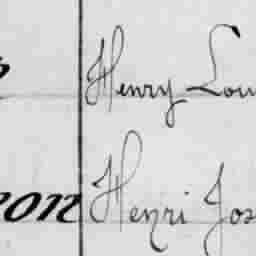 Henry Lou
on Henri Jos